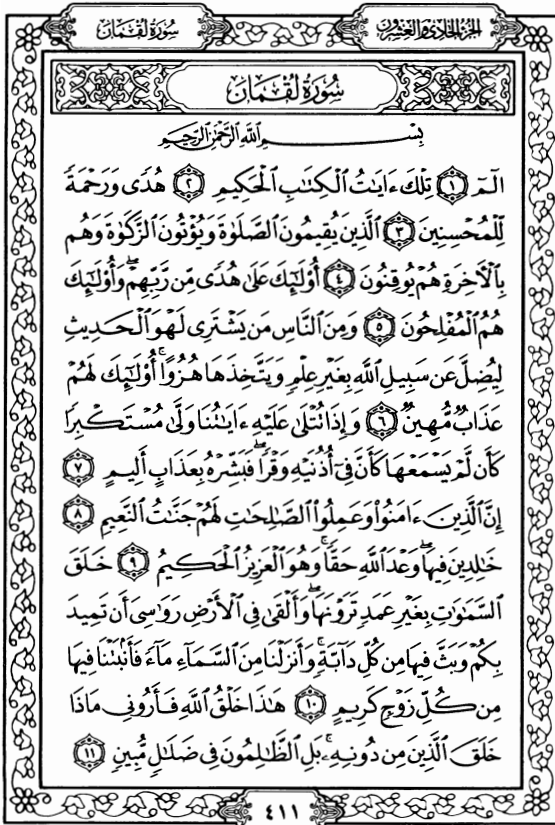 الجزء الحادي والعشرون
سورة لقمان
سُورَةُ لُقْمَانَ
بِسْمِ ٱللَّهِ ٱلرَّحْمَٰنِ ٱلرَّحِيمِ
الٓمٓ ١ تِلْكَ ءَايَٰتُ ٱلْكِتَٰبِ ٱلْحَكِيمِ ٢ هُدًى وَرَحْمَةً
لِّلْمُحْسِنِينَ ٣ ٱلَّذِينَ يُقِيمُونَ ٱلصَّلَوٰةَ وَيُؤْتُونَ ٱلزَّكَوٰةَ وَهُم
بِٱلْأَخِرَةِ هُمْ يُوقِنُونَ ٤ أُو۟لَٰٓئِكَ عَلَىٰ هُدًى مِّن رَّبِّهِمْ ۖ وَأُو۟لَٰٓئِكَ
هُمُ ٱلْمُفْلِحُونَ ٥ وَمِنَ ٱلنَّاسِ مَن يَشْتَرِى لَهْوَ ٱلْحَدِيثِ
لِيُضِلَّ عَن سَبِيلِ ٱللَّهِ بِغَيْرِ عِلْمٍ وَيَتَّخِذَهَا هُزُوًا ۚ أُو۟لَٰٓئِكَ لَهُمْ
عَذَابٌ مُّهِينٌ ٦ وَإِذَا تُتْلَىٰ عَلَيْهِ ءَايَٰتُنَا وَلَّىٰ مُسْتَكْبِرًا
كَأَن لَّمْ يَسْمَعْهَا كَأَنَّ فِىٓ أُذُنَيْهِ وَقْرًا ۖ فَبَشِّرْهُ بِعَذَابٍ أَلِيمٍ ٧
إِنَّ ٱلَّذِينَ ءَامَنُوا۟ وَعَمِلُوا۟ ٱلصَّٰلِحَٰتِ لَهُمْ جَنَّٰتُ ٱلنَّعِيمِ ٨
خَٰلِدِينَ فِيهَا ۖ وَعْدَ ٱللَّهِ حَقًّا ۚ وَهُوَ ٱلْعَزِيزُ ٱلْحَكِيمُ ٩ خَلَقَ
ٱلسَّمَٰوَٰتِ بِغَيْرِ عَمَدٍ تَرَوْنَهَا ۖ وَأَلْقَىٰ فِى ٱلْأَرْضِ رَوَٰسِىَ أَن تَمِيدَ
بِكُمْ وَبَثَّ فِيهَا مِن كُلِّ دَآبَّةٍ ۚ وَأَنزَلْنَا مِنَ ٱلسَّمَآءِ مَآءً فَأَنۢبَتْنَا فِيهَا
مِن كُلِّ زَوْجٍ كَرِيمٍ ١٠ هَٰذَا خَلْقُ ٱللَّهِ فَأَرُونِى مَاذَا
خَلَقَ ٱلَّذِينَ مِن دُونِهِۦ ۚ بَلِ ٱلظَّٰلِمُونَ فِى ضَلَٰلٍ مُّبِينٍ ١١
٤١١